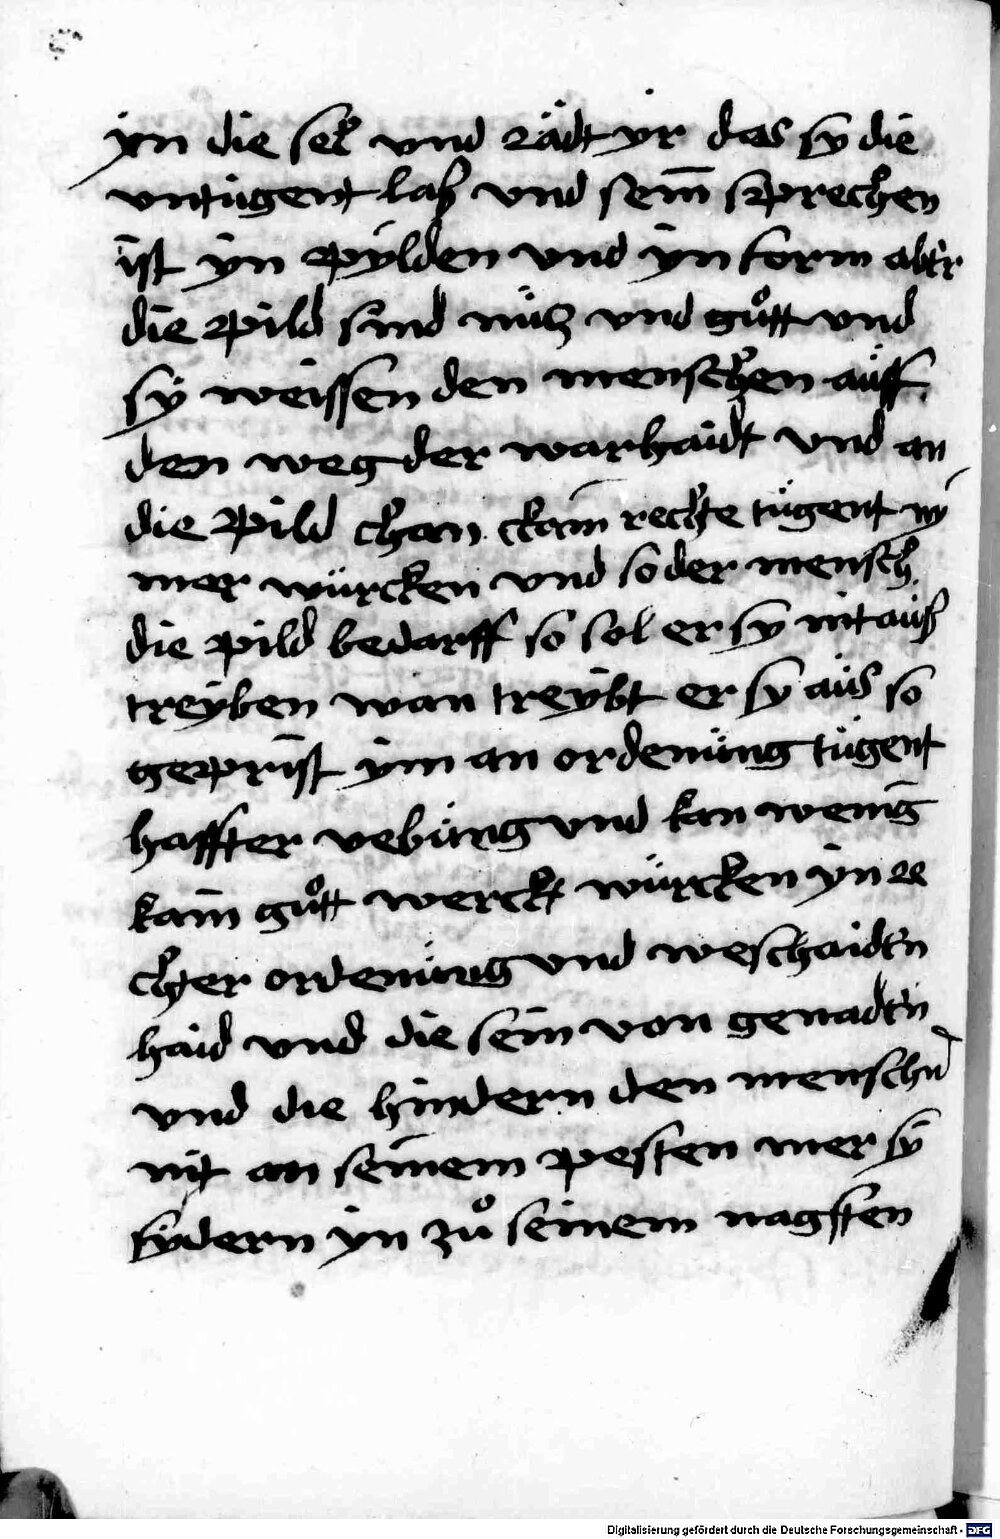 yn die sel vnd rädt yr das sy die
vntugent laß vnd sein̄ sprechen
ist yn pylden vnd yn form aber
die pild sind nücz vnd guͦtt vnd
sy weissen den menschen aüff
den weg der warhaidt vnd an
die pild chan ckain̄ rechte tügent ny̅
mer würcken vnd so der mensch
die pild bedarff so sol er sy nit auß
treyben wan treybt er sy aüs so
geprist ym an ordenüng tügent
haffter vebüng vnd kan wenig
kain̄ guͦtt werck würcken yn re
chter ordenüng vnd weschaiden
haid vnd die sein von genaden
vnd die hindern den menschn̄
nit an seinem pesten mer sy
fydern yn zuͦ seinem nagsten
Digitalisierung gefördert durch die Deutsche Forschungsgemeinschaft - DFG